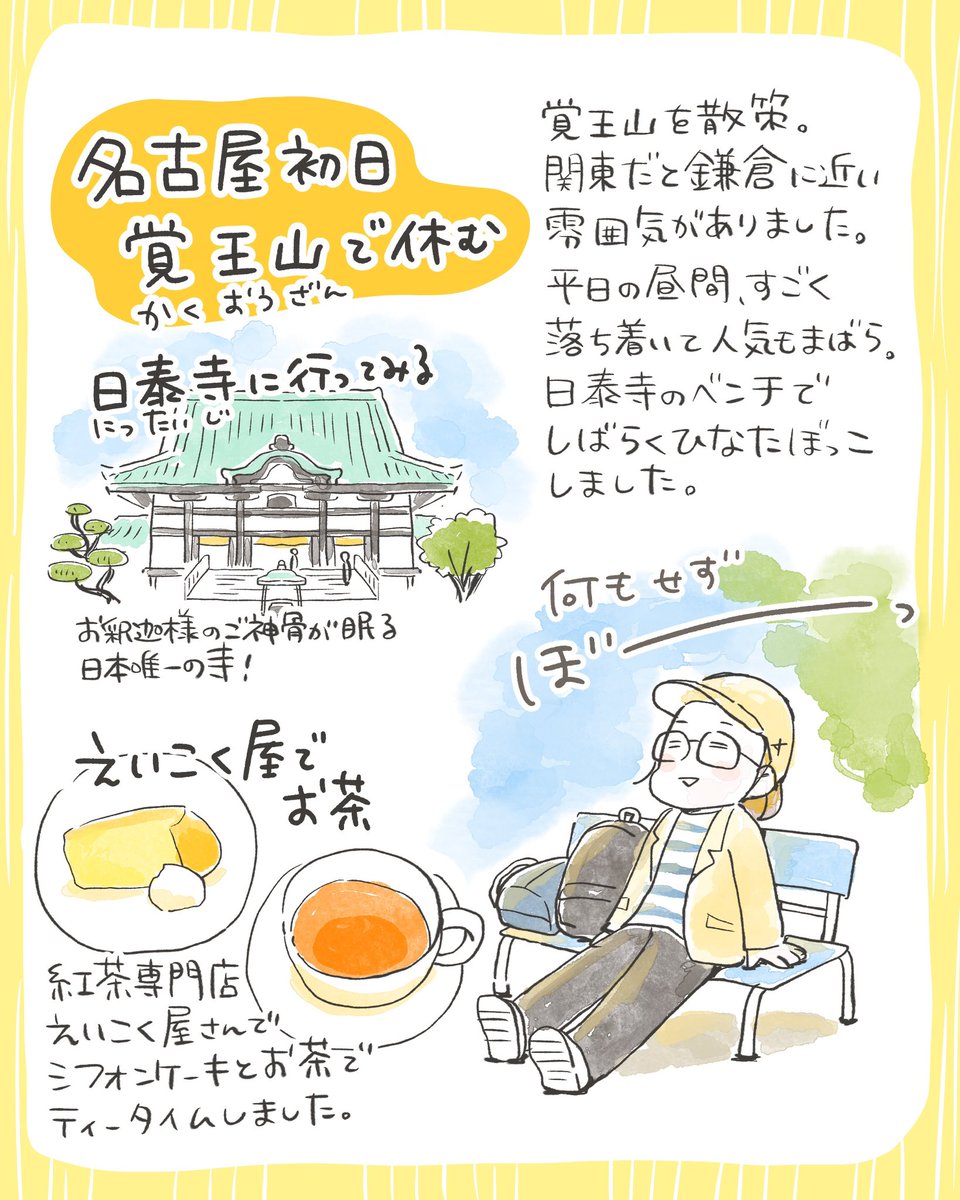 名古屋初日
覚王山で休む
かくおうざん
日泰寺に行ってみる
にったいじ
お釈迦様のご神骨が眠る
日本唯一の寺!
覚王山を散策。
関東だと鎌倉に近い
雰囲気がありました。
平日の昼間、すごく
落ち着いて人気もまばら。
日泰寺のベンチで
しばらくひなたぼっこ
しました。
何もせず
ぼーっ
えいこく屋で
お茶
紅茶専門店
えいこく屋さんで
シフォンケーキとお茶で
ティータイムしました。